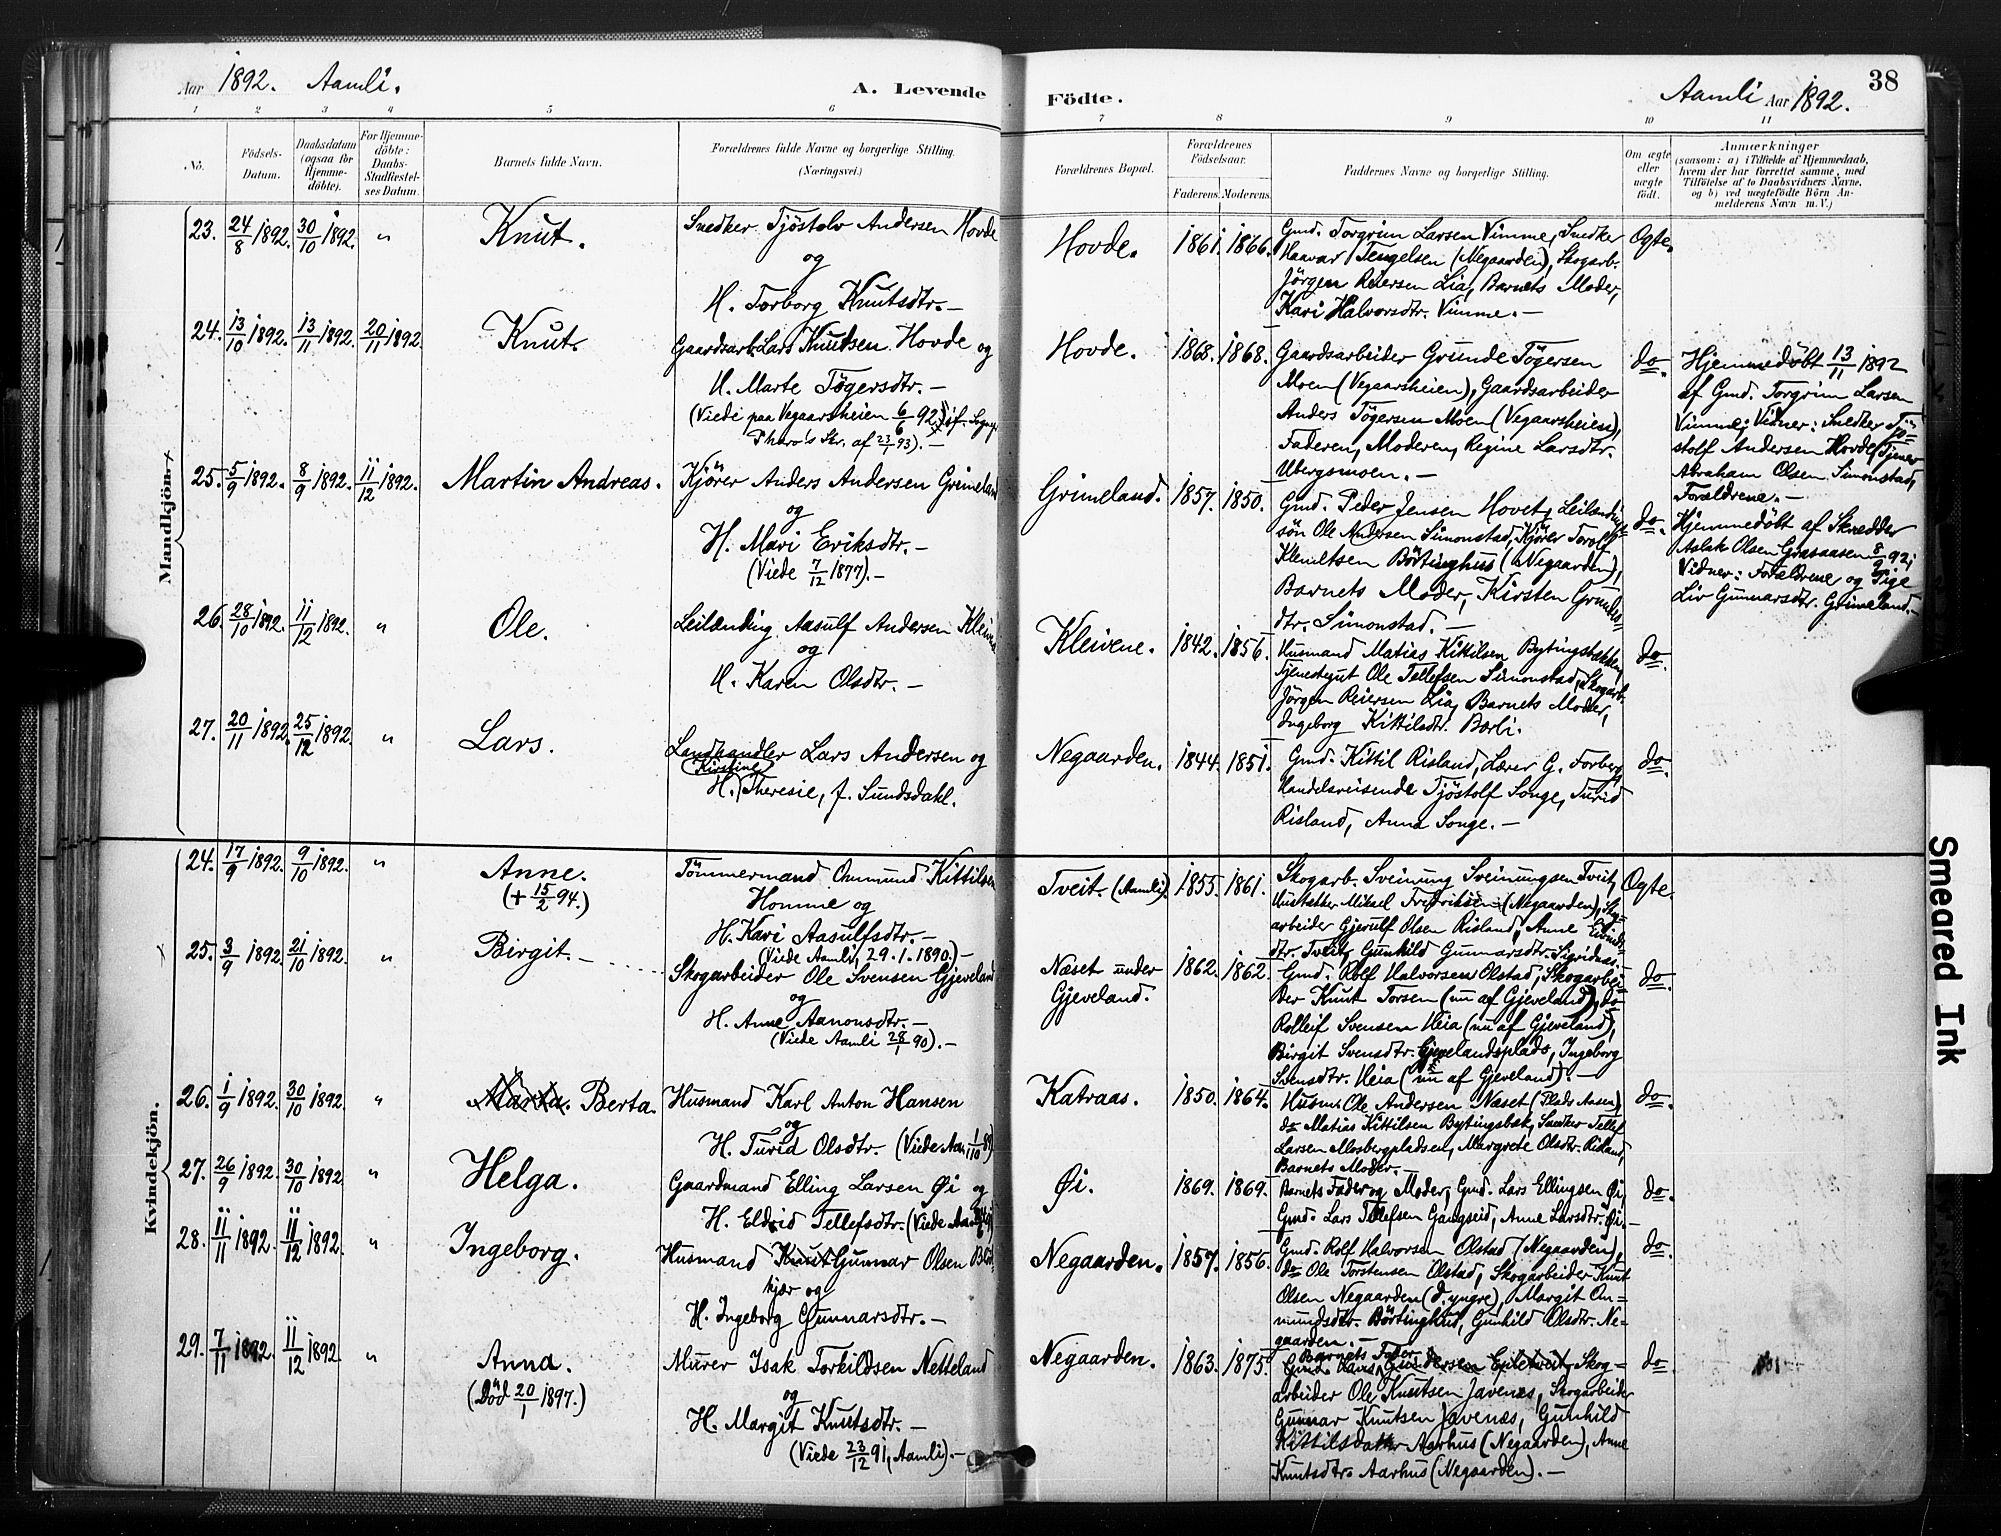 Aar 1892. Aamli.
A. Levende
Födte.
Aamli Aar 1892.
38
1 2 3 4 5 6 7 8 9 10 11
No.
Födsels-
Datum.
Daabsdatum
(ogsaa for
Hjemme-
döbte).
For Hjemme-
döbte:
Daabs-
Stadfæstel-
ses Datum.
Barnets fulde Navn.
Forældrenes fulde Navne og borgerlige Stilling.
(Næringsvei.)
Forældrenes Bopæl.
Forældrenes
Födselsaar.
Faderens. Moderens.
Faddernes Navne og borgerlige Stilling.
Om ægte
eller
uægte
födt.
Anmærkninger
(saasom: a) i Tilfælde af Hjemmedaab,
hvem der har forrettet samme, med
Tilföielse af to Daabsvidners Navne,
og b) ved uægtefödte Börn An-
melderens Navn m.V.)
Mandkjön.
23. 24/8 1892. 30/10 1892. " Knut.
Snedker Tjöstolv Andersen Hovde
og
H. Torborg Knutsdtr. -
Hovde. 1861. 1866.
Gmd. Torgrim Larsen Vimme, Snedker
Haavar Tengelsen (Negaarden), Skogarb.
Jörgen Reiersen Lia, Barnets Moder,
Kari Halvorsdtr. Vimme. -
Ogte.
24. 13/10 1892. 13/11 1892. 20/11 1892. Knut.
Gaardsarb. Lars Knutsen Hovde og
H. Marte Tögersdtr. -
(Viede paa Vegaarsheien 6/6 92, jf. Sogne-
Hovde. 1868. 1868.
Gaardsarbeider Grunde Tögersen
Moen (Vegaarsheien), Gaardsarbeider
Anders Tögersen Moen (Vegaarsheien),
Faderen, Moderen, Regine Larsdtr.
Ubergsmoen. -
do.
Hjemmedöbt 13/11 1892
af Gmd. Torgrim Larsen
Vimme; Vidner: Snedker Tjö-
stolf Andersen Hovde, Tjener
Abraham Olsen Simonstad,
Forældrene. -
25. 5/9 1892. 8/9 1892. 11/12 1892. Martin Andreas.
Kjörer Anders Andersen Grimeland
og
H. Mari Eriksdtr. -
(Viede 7/12 1877). -
Grimeland. 1857. 1850.
Gmd. Peder Jensen Hovet, Leilændings-
sön Ole Andersen Simonstad, Kjörer Torolf
Klemitsen Börtinghus (Negaarden),
Barnets Moder, Kirsten Grundes-
dtr. Simonstad. -
do.
Hjemmedöbt af Skrædder
Aslak Olsen Graasaasen 8/9 92;
Vidner: Forældrene og Pige
Liv Gunnarsdtr. Grimeland.
26. 28/10 1892. 11/12 1892. " Ole.
Leilænding Aasulf Andersen Kleivene
og
H. Karen Olsdtr. -
Kleivene. 1842. 1856.
Husmand Matias Kittilsen Bytingsbækken,
Tjenestegut Ole Tellefsen Simonstad, Skogarb.
Jörgen Reiersen Lia, Barnets Moder,
Ingeborg Kittilsdtr. Borli.
do.
27. 20/11 1892. 25/12 1892. " Lars.
Landhandler Lars Andersen og
Kirstine
H. Theresie, f. Sundsdahl.
Negaarden. 1844. 1851.
Gmd. Kittil Risland, Lærer G. Forberg,
Handelsreisende Tjöstolf Songe, Turid
Risland, Anna Songe. -
do.
Kvindekjön.
24. 17/9 1892. 9/10 1892. " Anne.
(+ 15/2 94.)
Tömmermand Ommund Kittilsen
Homme og
H. Kari Aasulfsdtr. -
(Viede Aamli, 29.1.1890). -
Tveit. (Aamli). 1855. 1861.
Skogarb. Sveinung Sveinungsen Tveit,
Mikael Fredriksen (Negaarden), Skog-
arbeider Gjerulf Olsen Risland, Anne Eivinds-
dtr. Tveit, Gunhild Gunnarsdtr. Sigridnæs.
Ogte.
25. 3/9 1892. 21/10 1892. " Birgit. -
Skogarbeider Ole Svensen Gjeveland
og
H. Anne Aanonsdtr. -
(Viede Aamli 28/1 90). -
Næset under
Gjeveland.
1862. 1862.
Gmd. Rolf Halvorsen Olstad, Skogarbei-
der Knut Torsen (nu af Gjeveland), do
Rolleif Svensen Heia (nu af Gjeveland),
Birgit Svensdtr. Gjevelandsplads, Ingeborg
Svensdtr. Heia (nu af Gjeveland). -
do.
26. 1/9 1892. 30/10 1892. " Marta. Berta.
Husmand Karl Anton Hansen
og
H. Turid Olsdtr. (Viede Aamli 1/10 89)
Katraas. 1850. 1864.
Husm. Ole Andersen Næset (Plads Aasen),
do Matias Kittilsen Bytingsbæk, Snedker Tellef
Larsen Mosbergpladsen, Margrete Olsdtr. Risland,
Barnets Moder. -
do.
27. 26/9 1892. 30/10 1892. " Helga.
Gaardmand Elling Larsen Øi og
H. Eldrid Tellefsdtr. (Viede
Øi. 1869. 1869.
Barnets Fader og Moder, Gmd. Lars Ellingsen Øi,
Gmd. Lars Tellefsen Gangseid, Anne Larsdtr. Øi. -
do.
28. 11/11 1892. 11/12 1892. " Ingeborg.
Husmand Knut Gunnar Olsen
kjær og
H. Ingeborg Gunnarsdtr. -
Negaarden. 1857. 1856.
Gmd. Rolf Halvorsen Olstad (Negaarden),
do Ole Torstensen Olstad, Skogarbeider Knut
Olsen Negaarden (d. yngre), Margit Om-
mundsdtr. Börtinghus, Gunhild Olsdtr. Ne-
gaarden. -
do.
29. 7/11 1892. 11/12 1892 " Anna.
(Död 20/1 1897.)
Murer Isak Torkildsen Netteland
og
H. Margit Knutsdtr. -
(Viede 23/12 91, Aamli). -
Negaarden. 1863. 1875.
Barnets Fader,
Gmd. Lars Gundersen Epletveit, Skog-
arbeider Ole Knutsen Javenæs, Skogarbeider
Gunnar Knutsen Javenæs, Gunhild
Kittilsdatter Aarhus (Negaarden), Anne
Knutsdtr. Aarhus (Negaarden). -
do.
Smeared Ink